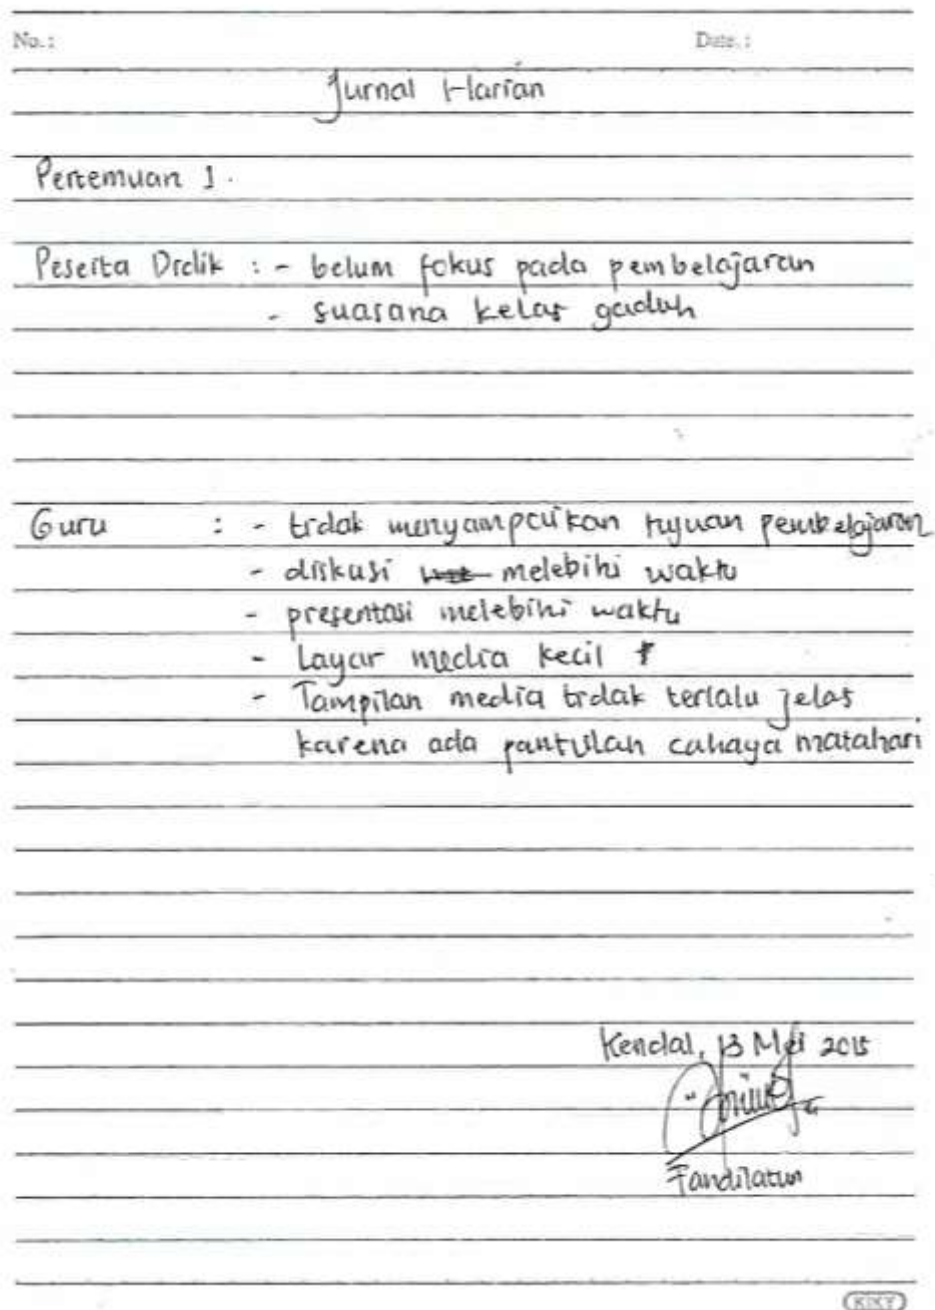 No.:
Date.:
Jurnal Harian
Pertemuan 1.
Peserta Didik : - belum fokus pada pembelajaran
- suasana kelas gaduh
Guru : - tidak menyampaikan tujuan pembelajaran
- diskusi melebihi waktu
- presentasi melebihi waktu
- Layar media kecil
- Tampilan media tidak terlalu jelas
karena ada pantulan cahaya matahari
Kendal, 13 Mei 2015
Fandilatun
KIKY